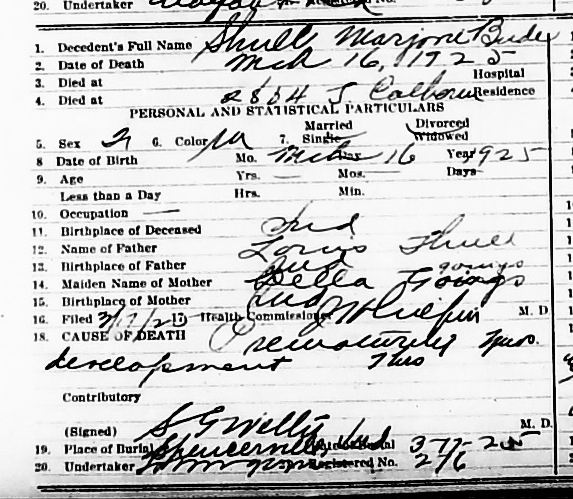 20. Undertaker
1. Decedent's Full Name Shull Marjorie
2. Date of Death Mch 16, 1925
3. Died at Hospital
4. Died at 2804 S Calhoun Residence
PERSONAL AND STATISTICAL PARTICULARS
Married Divorced
5. Sex 6. Color W 7. Single Widowed
8 Date of Birth Mo. Mch Day 16 Year 1925
9. Age Yrs. — Mos. — Days
Less than a Day Hrs. Min.
10. Occupation —
11. Birthplace of Deceased Ind
12. Name of Father Shull
13. Birthplace of Father Ind Goings
14. Maiden Name of Mother Della Goings
15. Birthplace of Mother Ind
16. Filed 3/17/25 17 Health Commissioner M. D
18. CAUSE OF DEATH
development
Contributory
(Signed) M. D.
19. Place of Burial Spencerville Ind Date of Burial 3-17-25
20. Undertaker Registered No. 276